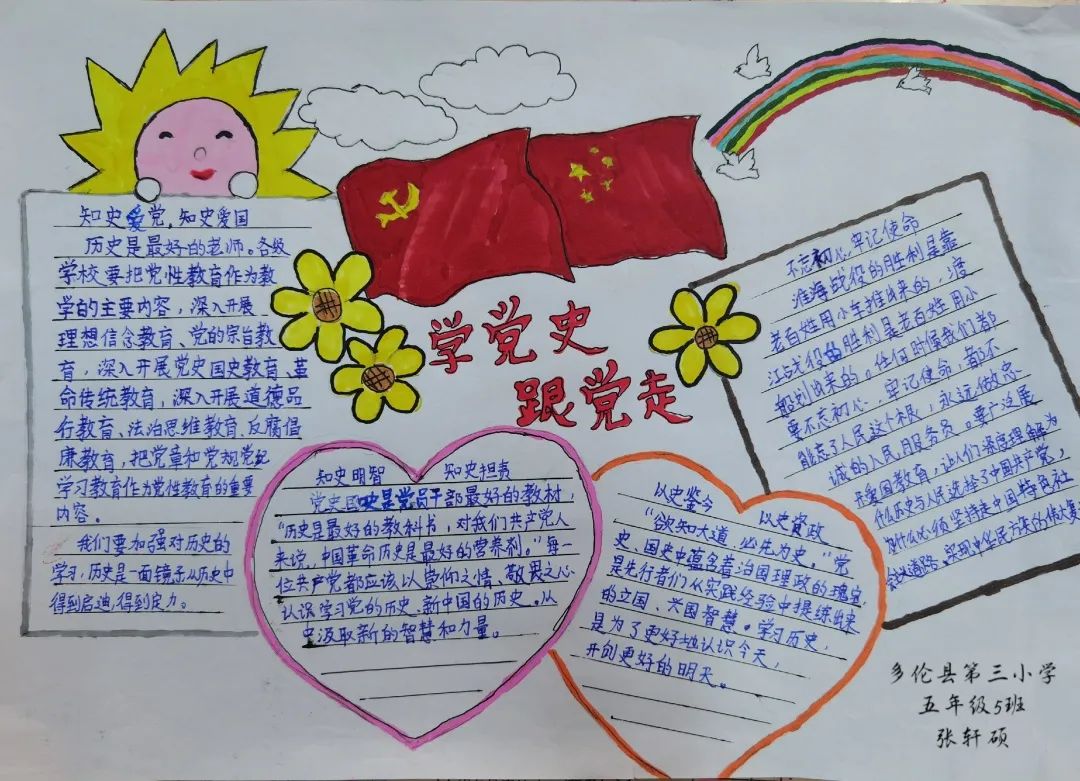 知史爱党,知史爱国
历史是最好的老师。各级
学校要把党性教育作为教
学的主要内容，深入开展
理想信念教育、党的宗旨教
育，深入开展党史国史教育、革
命传统教育，深入开展道德品
行教育、法治思维教育、反腐倡
廉教育，把党章和党规党纪
学习教育作为党性教育的重要
内容。
我们要加强对历史的
学习，历史是一面镜子从历史中
得到启迪，得到定力。
学党史
跟党走
知史明智 知史担责
党史国史是党员干部最好的教材，
“历史是最好的教科书，对我们共产党人
来说，中国革命历史是最好的营养剂。”每一
位共产党都应该以崇仰之情、敬畏之心
认识学习党的历史、新中国的历史。从
史汲取新的智慧和力量。
以史鉴今 以史资政
“欲知大道，必先为史。”党
史、国史中蕴含着治国理政的瑰宝，
是先行者们从实践经验中提练出来
的立国、兴国智慧。学习历史，
是为了更好地认识今天，
开创更好的明天。
不忘初心,牢记使命
淮海战役的胜利是靠
老百姓用小车推出来的，渡
江战役的胜利是老百姓用小
船划出来的。任何时候我们都
要不忘初心、牢记使命，都不
能忘了人民这个根，永远做忠
诚的人民服务员。要广泛展
开爱国教育，让人们深思理解为
什么历史与人民选择了中国共产党，
为什么必须坚持走中国特色社
会主义道路、实现中华民族的伟大复
多伦县第三小学
五年级5班
张轩硕